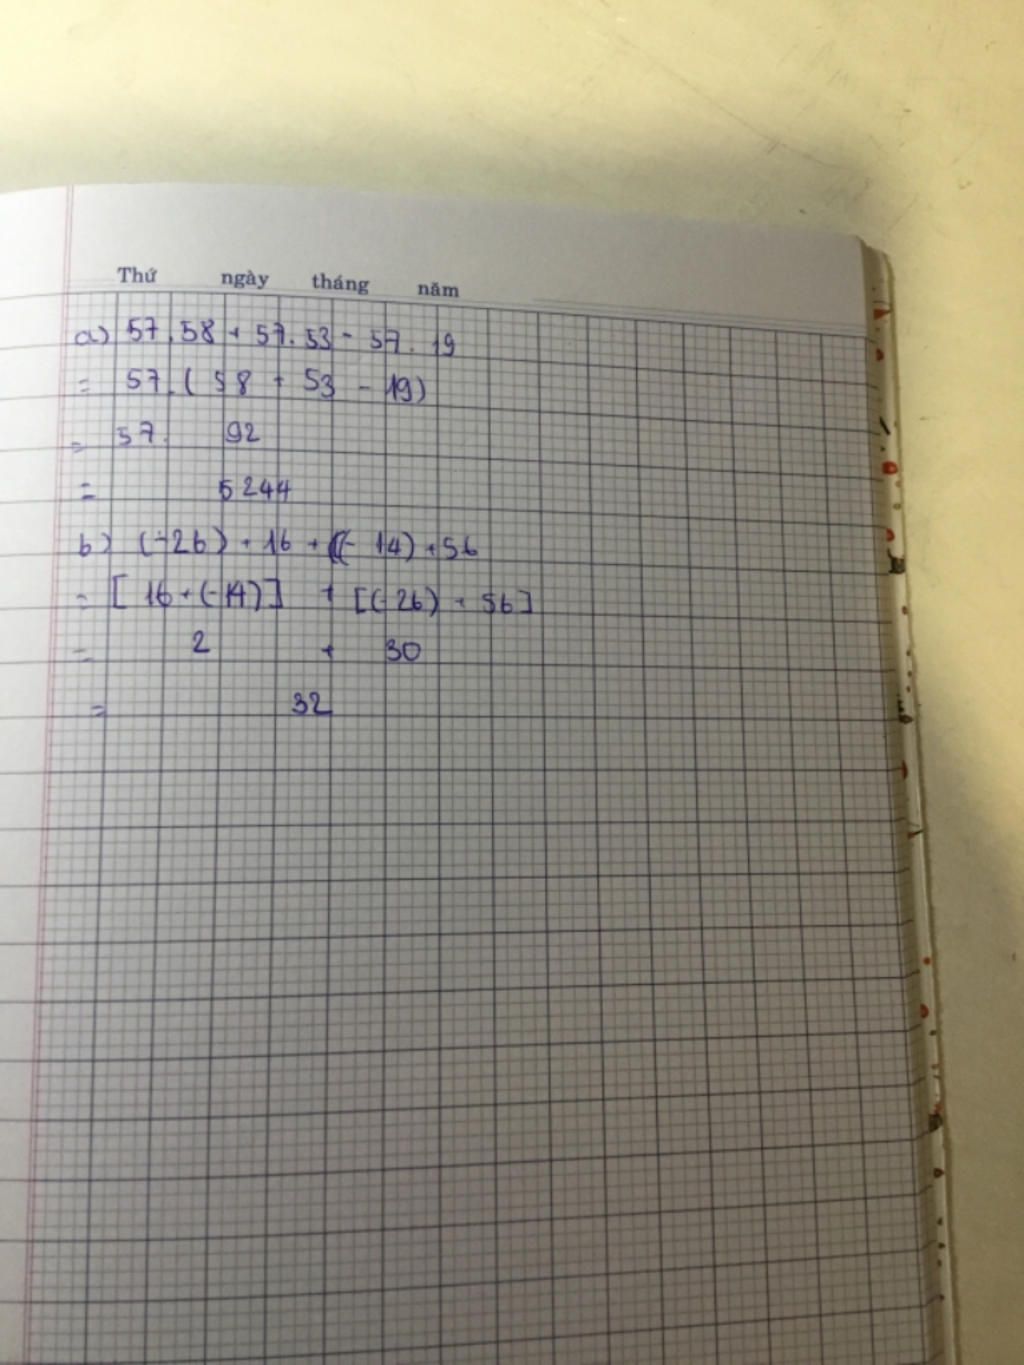 Thứ ngày tháng năm
a) 57.58 + 57.53 - 57.19
= 57.(58 + 53 - 19)
= 57. 92
= 5244
b) (-26) + 16 + (-14) + 56
= [16 + (-14)] + [(-26) + 56]
= 2 + 30
= 32